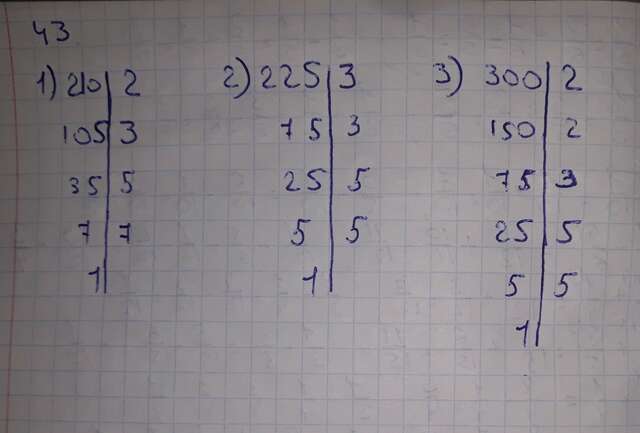 43
1) 210 | 2 2) 225 | 3 3) 300 | 2
105 | 3 75 | 3 150 | 2
35 | 5 25 | 5 75 | 3
7 | 7 5 | 5 25 | 5
1 | 1 | 5 | 5
1 |